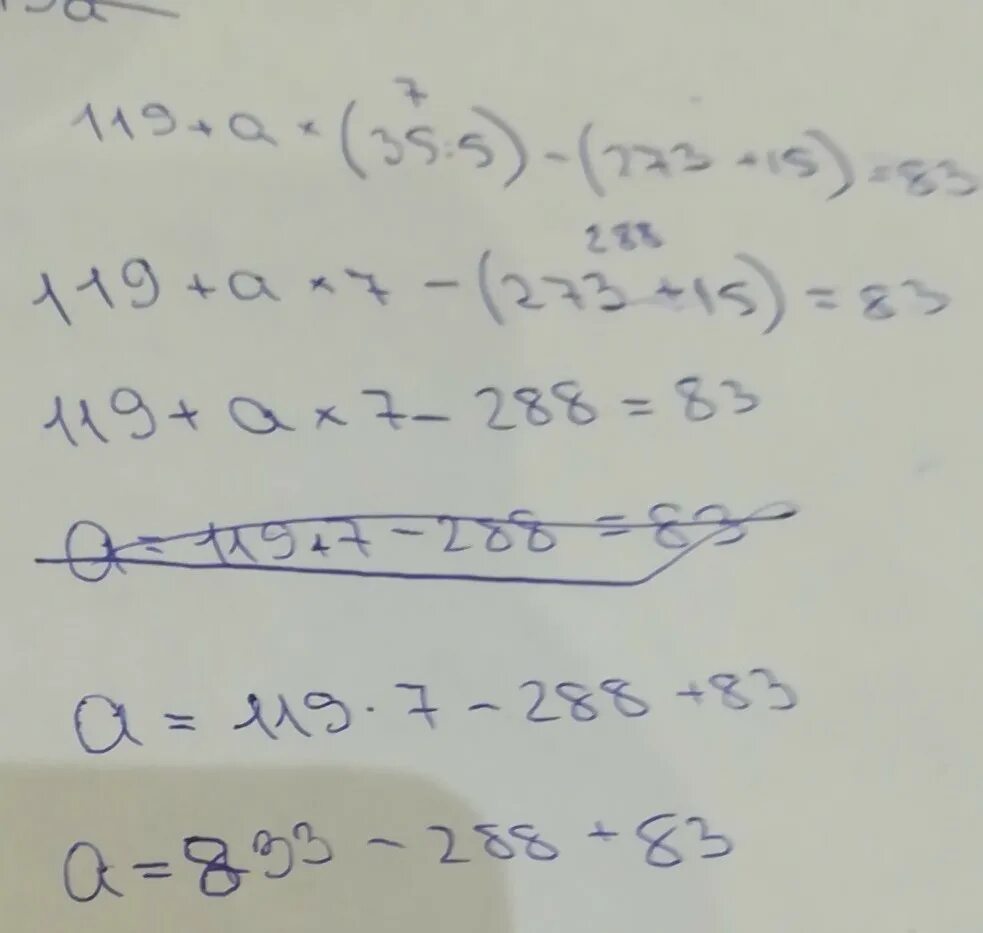 a
7
119 + a × (35:5) - (273 + 15) = 83
288
119 + a × 7 - (273 + 15) = 83
119 + a × 7 - 288 = 83
a = 119 + 7 - 288 = 83
a = 119 · 7 - 288 + 83
a = 893 - 288 + 83